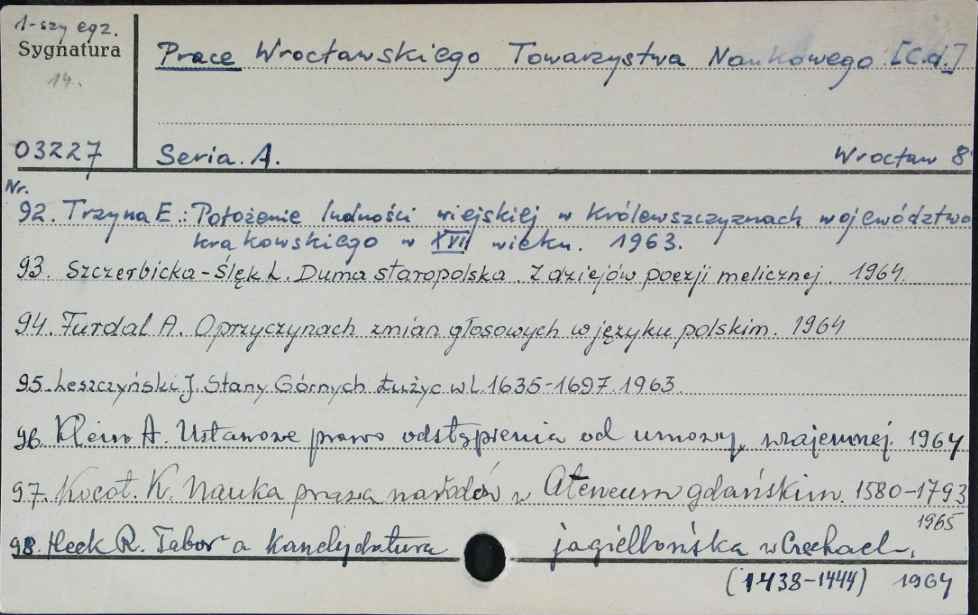 1-szy egz.
Sygnatura
14.
03227
Prace Wrocławskiego Towarzystwa Naukowego [C.d.]
Seria. A. Wrocław 8°
Nr.
92. Trzyna E.: Położenie ludności wiejskiej w królewszczyznach województwa
krakowskiego w XVII wieku. 1963.
93. Szczerbicka-Ślęk L. Duma staropolska. Z dziejów poezji melicznej. 1964.
94. Furdal A. O przyczynach zmian głosowych w języku polskim. 1964
95. Leszczyński J. Stany Górnych Łużyc w l. 1635-1697. 1963.
96. Klein A. Ustawowe prawo odstąpienia od umowy wzajemnej. 1964
97. Kocot. K. Nauka prawa narodów w Ateneum gdańskim. 1580-1793
1965
98. Heck R. Tabor a kandydatura jagiellońska w Czechach.
(1438-1444) 1964